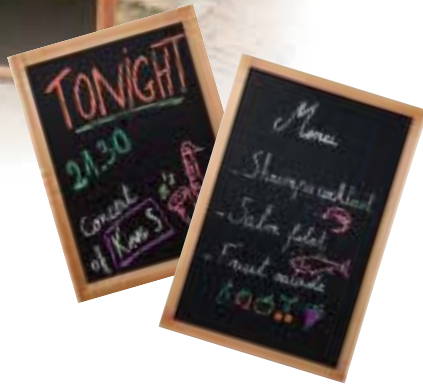 TONIGHT
21.30
Concert
of Kings
Menu
- Shrimp cocktail
- Salm filet
- Fruit salade